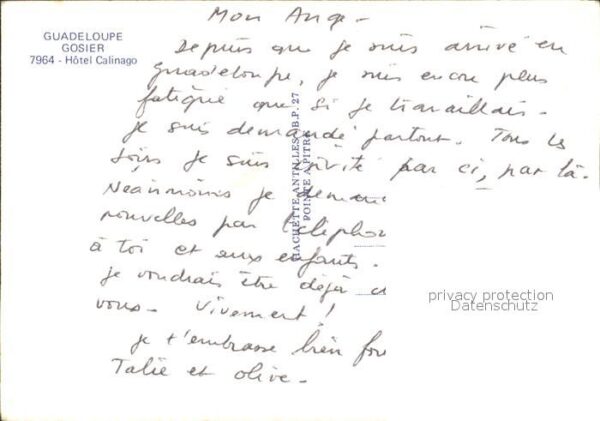 GUADELOUPE
GOSIER
7964 - Hôtel Calinago
Mon Ange -
Depuis que je suis arrivé en
Guadeloupe, je suis encore plus
fatigué que si je travaillais -
je suis demandé partout. Tous les
soirs je suis invité par ci, par là.
Néanmoins je deman
nouvelles par télépho
à toi et aux enfants -
je voudrais être déjà
vous - Vivement !
je t'embrasse bien for
Talie et olive -
HACHETTE ANTILLES B.P. 27
POINTE A PITRE
privacy protection
Datenschutz